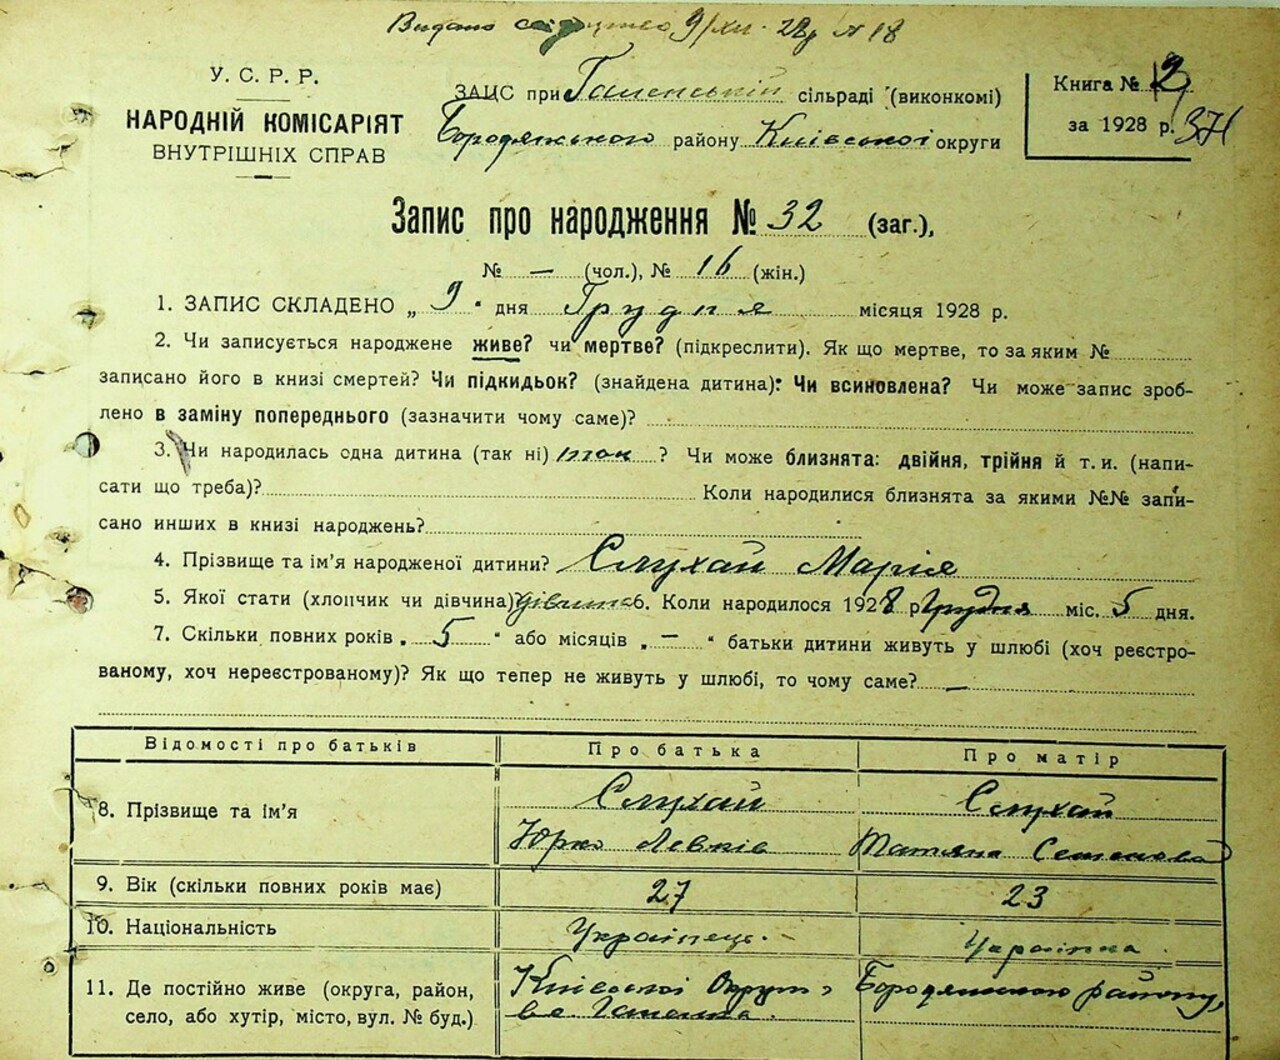 Видано свідоцтво 9/XII 28р № 18
У. С. Р. Р.
НАРОДНІЙ КОМІСАРІЯТ
ВНУТРІШНІХ СПРАВ
ЗАЦС при сільраді (виконкомі)
Бородянського району Київської округи
Книга №
за 1928 р.
Запис про народження № 32 (заг.),
№ — (чол.), № 16 (жін.)
1. ЗАПИС СКЛАДЕНО „ 9 " дня Грудня місяця 1928 р.
2. Чи записується народжене живе? чи мертве? (підкреслити). Як що мертве, то за яким №
записано його в книзі смертей? Чи підкидьок? (знайдена дитина): Чи всиновлена? Чи може запис зроб-
лено в заміну попереднього (зазначити чому саме)?
3. Чи народилась одна дитина (так ні) так ? Чи може близнята: двійня, трійня й т. и. (напи-
сати що треба)? Коли народилися близнята за якими №№ запи-
сано инших в книзі народжень?
4. Прізвище та ім'я народженої дитини? Слухай Марія
5. Якої стати (хлопчик чи дівчина) дівчина 6. Коли народилося 1928 р Грудня міс. 5 дня.
7. Скільки повних років „ 5 " або місяців „ — " батьки дитини живуть у шлюбі (хоч реєстро-
ваному, хоч нереєстрованому)? Як що тепер не живуть у шлюбі, то чому саме? —
Відомості про батьків Про батька Про матір
8. Прізвище та ім'я Слухай Слухай
Юрко Левків Татяна Семенова
9. Вік (скільки повних років має) 27 23
10. Національність Українець. Українка
11. Де постійно живе (округа, район, Київської Округи Бородянського району,
село, або хутір, місто, вул. № буд.)